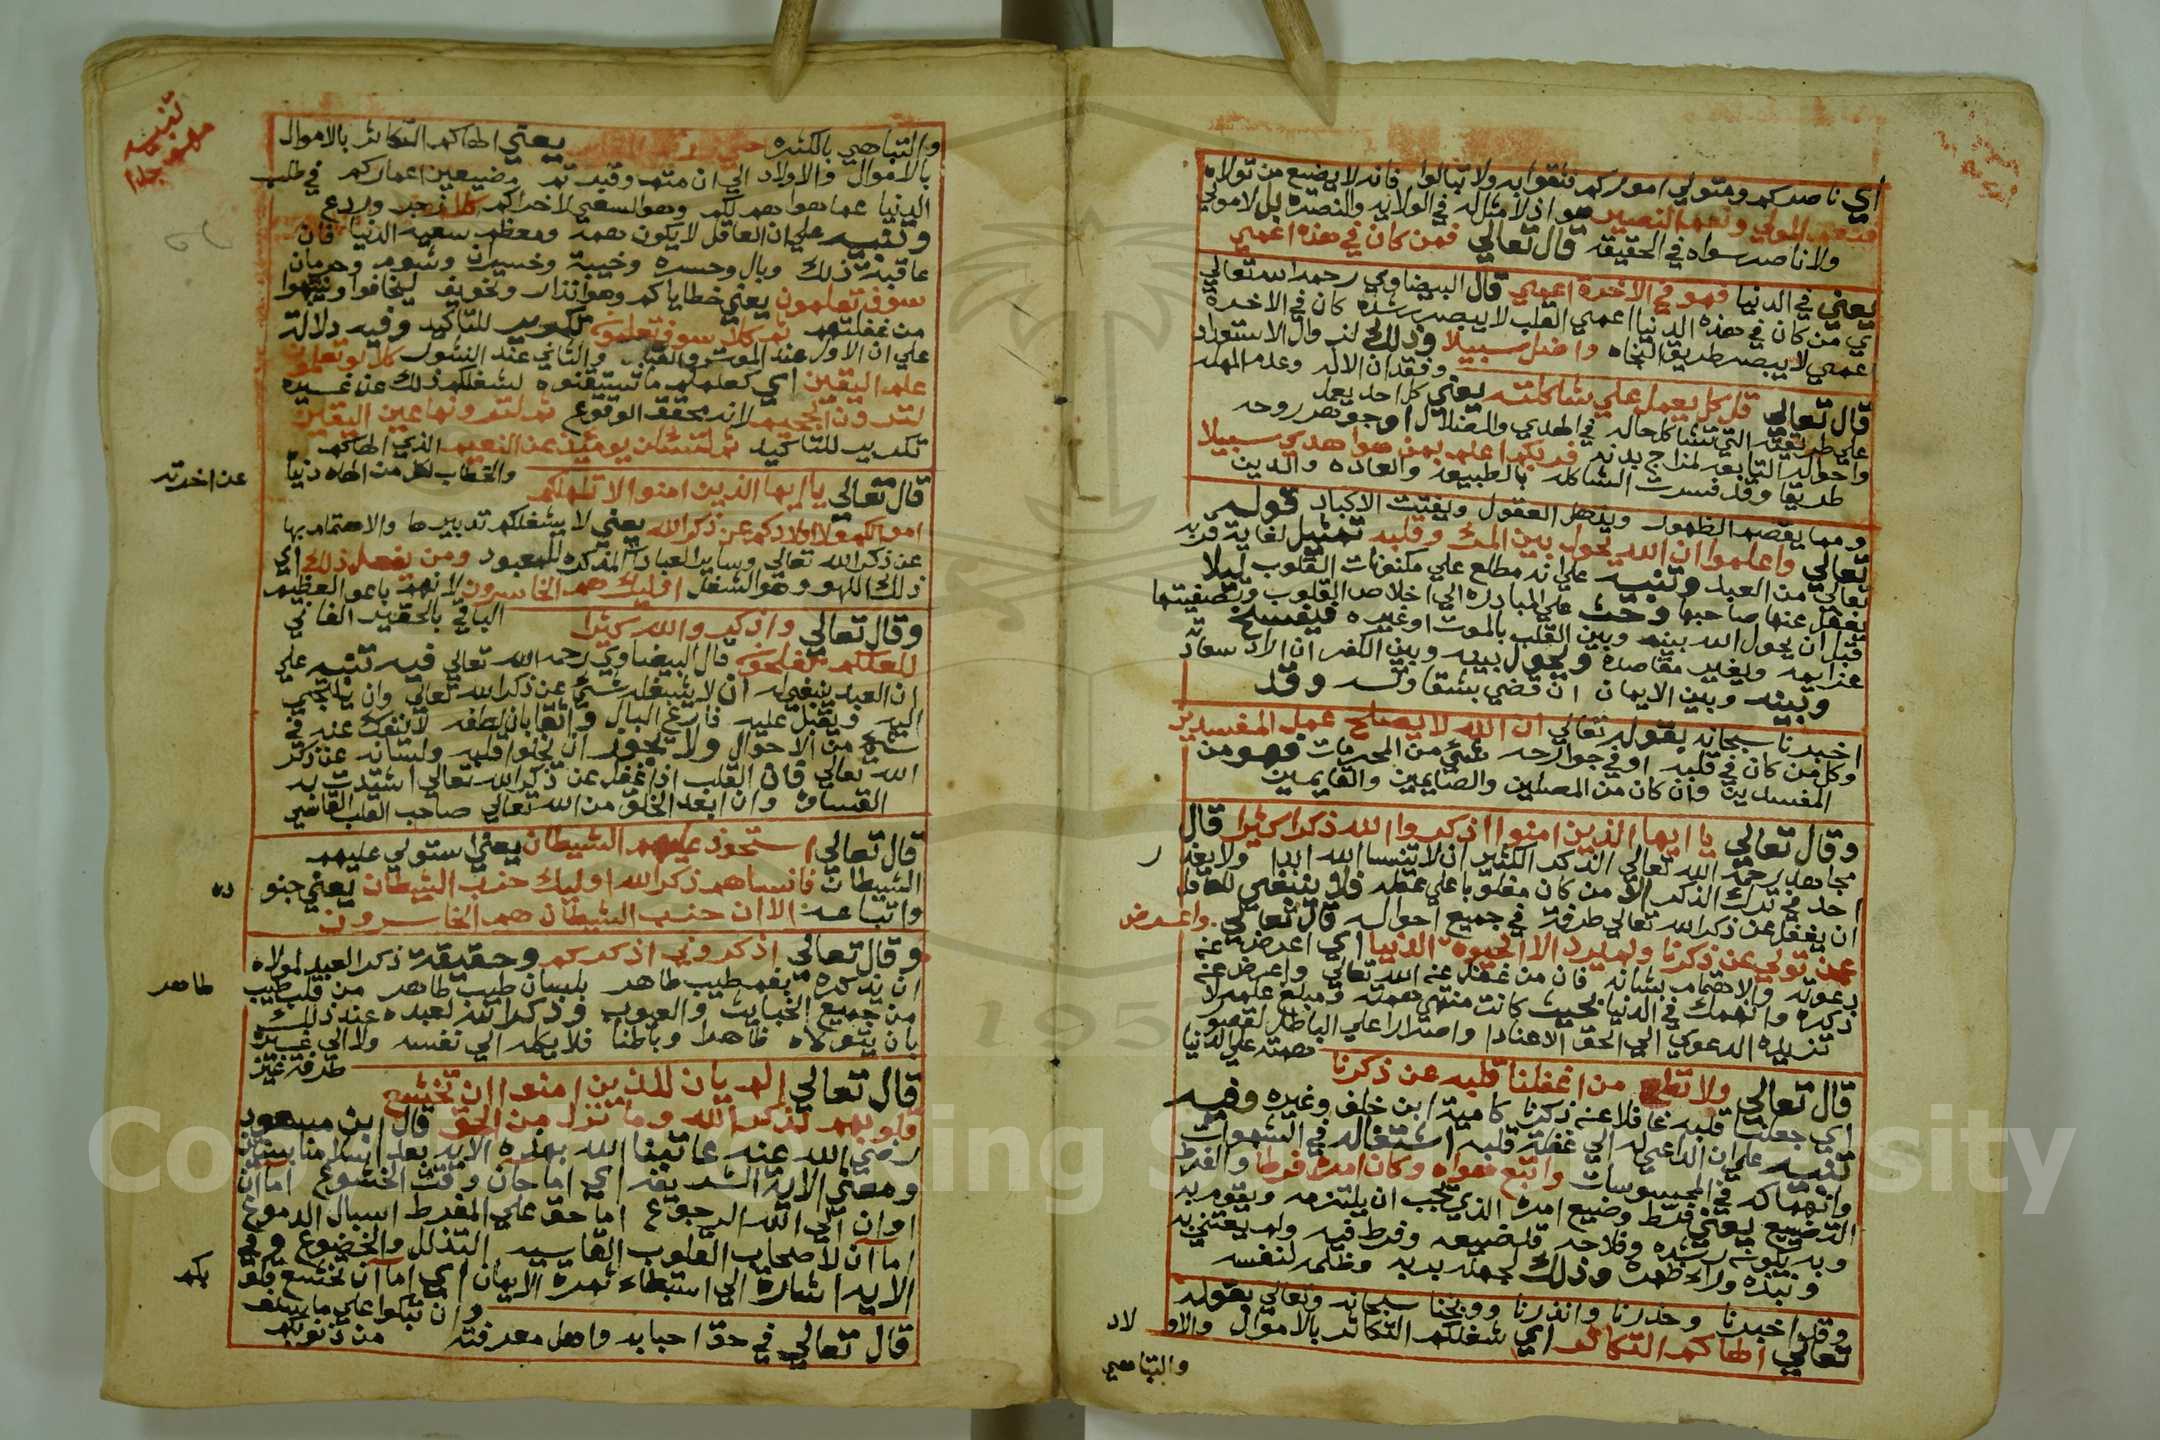 اي ناصركم ومتولي اموركم فثقوا به ولا تبالوا فانه لا يضيع من تولاه
فنعم المولي ونعم النصير هو اذ لا مثاله في الولايه والنصره بل لا مولي
ولا ناصر سواه في الحقيقه قال تعالي فمن كان في هذه اعمي
يعني في الدنيا فهو في الاخرة اعمي قال البيضاوي رحمه الله تعالي
اي من كان في هذه الدنيا اعمي القلب لا يبصر رشده كان في الاخرة
اعمي لا يبصر طريق النجاه واضل سبيلا وذلك لزوال الاستعداد
وفقدان الاله وعدم المهله
قال تعالي قل كل يعمل علي شاكلته يعني كل احد يعمل
علي طريقته التي تشاكل حاله في الهدي والضلال او جوهر روحه
واحواله التابعه لمزاج بدنه فربكم اعلم بمن هو اهدي سبيلا
طريقا وقد فسرت الشاكله بالطبيعه والعاده والدين
ومما يقصم الظهور ويذهل العقول ويفتت الاكباد قوله
تعالي واعلموا ان الله يحول بين المرء وقلبه تمثيل لغاية قربه
تعالي من العبد وتنبيه علي انه مطلع علي مكنونات القلوب ليلا
يغفل عنها صاحبها وحث علي المبادره الي اخلاص القلوب وتصفيتها
قبل ان يحول الله بينه وبين القلب بالموت او غيره فيفسخ
عزايمه ويغير مقاصده ويحول بينه وبين الكفر ان اراد سعادته
وبينه وبين الايمان ان قضي بشقاوته وقد
اخبرنا سبحانه بقوله تعالي ان الله لا يصلح عمل المفسدين
وكل من كان في قلبه او في جوارحه شيء من المحرمات فهو من
المفسدين وان كان من المصلين والصايمين والقايمين
وقال تعالي يا ايها الذين امنوا اذكروا الله ذكرا كثيرا قال
مجاهد رحمه الله تعالي الذكر الكثير ان لا تنساه الله ابدا ولا يعذر
احد في ترك الذكر الا من كان مغلوبا علي عقله فلا ينبغي للعاقل
ان يغفل عن ذكر الله تعالي طرفة في جميع احواله قال تعالي واعرض
عمن تولي عن ذكرنا ولم يرد الا الحيوه الدنيا اي اعرض عن
دعوته والاهتمام بشانه فان من غفل عن الله تعالي واعرض عن
ذكره وانهمك في الدنيا بحيث كانت منتهي همته ومبلغ علمه لا
تزيده الدعوي الي الحق الا عنادا واصرارا علي الباطل لقصور
همته علي الدنيا
قال تعالي ولا تطع من اغفلنا قلبه عن ذكرنا
اي جعلنا قلبه غافلا عن ذكرنا كامية ابن خلف وغيره وفيه
تنبيه علي ان الداعي له الي غفلة قلبه اشتغاله في الشهوات
وانهماكه في المحسوسات واتبع هواه وكان امره فرطا والفرط
التضييع يعني فرط وضيع امره الذي يجب ان يلتزمه ويقوم به
وبه يكون رشده وفلاحه قد ضيعه وفرط فيه ولم يعتني به
ونبذه وراء ظهره وذلك لجهله بربه وظلمه لنفسه
وقد اخبرنا وحذرنا وانذرنا ووبخنا سبحانه وتعالي بقوله
تعالي الهاكم التكاثر اي شغلكم التكاثر بالاموال والاولاد
والتباهي
تنبيه
مهم جدا
والتباهي بالكثره يعني الهاكم التكاثر بالاموال
بالاموال والاولاد الي ان متم وقبرتم مضيعين اعماركم في طلب
الدنيا عما هو اهم لكم وهو السعي لاخراكم كلا زجر وردع
وتنبيه علي ان العاقل لا يكون همه ومعظم سعيه الدنيا فان
عاقبة ذلك وبال وحسره وخيبة وخسران وشوم وحرمان
سوف تعلمون يعني خطاياكم وهو انذار وتخويف ليخافوا وينتبهوا
من غفلتهم ثم كلا سوف تعلمون تكرير للتاكيد وفيه دلالة
علي ان الاول عند الموت والقبر والثاني عند النشور كلا لو تعلمون
علم اليقين اي كعلمكم ما تستيقنوه لشغلكم ذلك عن غيره
لترون الجحيم لانه محقق الوقوع ثم لترونها عين اليقين
تكرير للتاكيد ثم لتسئلن يوميذ عن النعيم الذي الهاكم
والخطاب لكل من الهاه دنياه عن اخرته
قال تعالي يا ايها الذين امنوا لا تلهكم
اموالكم ولا اولادكم عن ذكر الله يعني لا يشغلكم تدبيرها والاهتمام بها
عن ذكر الله تعالي وساير العبادات المذكره للمعبود ومن يفعل ذلك اي
ذلك اللهو وهو الشغل اوليك هم الخاسرون لانهم باعو العظيم
الباقي بالحقير الفاني
وقال تعالي واذكروا الله كثيرا
لعلكم تفلحون قال البيضاوي رحمه الله تعالي فيه تنبيه علي
ان العبد ينبغي له ان لا يشغله شيء عن ذكر الله تعالي وان يلتجي
اليه ويقبل عليه فارغ البال واثقا بان لطفه لا ينفك عنه في
شيء من الاحوال ولا يجوز ان يخلو قلبه ولسانه عن ذكر
الله تعالي فان القلب اذا غفل عن ذكر الله تعالي اشتدت به
القساوه وان ابعد الخلق من الله تعالي صاحب القلب القاسي
قال تعالي استحوذ عليهم الشيطان يعني استولي عليهم
الشيطان فانساهم ذكر الله اوليك حزب الشيطان يعني جنوده
واتباعه الا ان حزب الشيطان هم الخاسرون
وقال تعالي اذكروني اذكركم وحقيقة ذكر العبد لمولاه
ان يذكره بفم طيب طاهر بلسان طيب طاهر من قلب طيب طاهر
من جميع الخبايث والعيوب وذكر الله لعبده عند ذلك
بان يتولاه ظاهرا وباطنا فلا يكله الي نفسه ولا الي غيره
طرفة عين
قال تعالي الم يان للذين امنوا ان تخشع
قلوبهم لذكر الله وما نزل من الحق قال ابن مسعود
رضي الله عنه عاتبنا الله بهذه الايه بعد اسلامنا بسنتين
ومعني الاية الشريفه اي اما حان وقت الخشوع اما ان
اوان الي الله الرجوع اما حق علي المفرط اسبال الدموع
اما آن لاصحاب القلوب القاسيه التذلل والخضوع وفي
الايه اشارة الي استبطاء ثمرة الايمان اي اما آن تخشع قلوبكم
وان تبكوا علي ما سلف
من ذنوبكم
قال تعالي في حق احبابه واهل معرفته
1957
Copyright © King Saud University